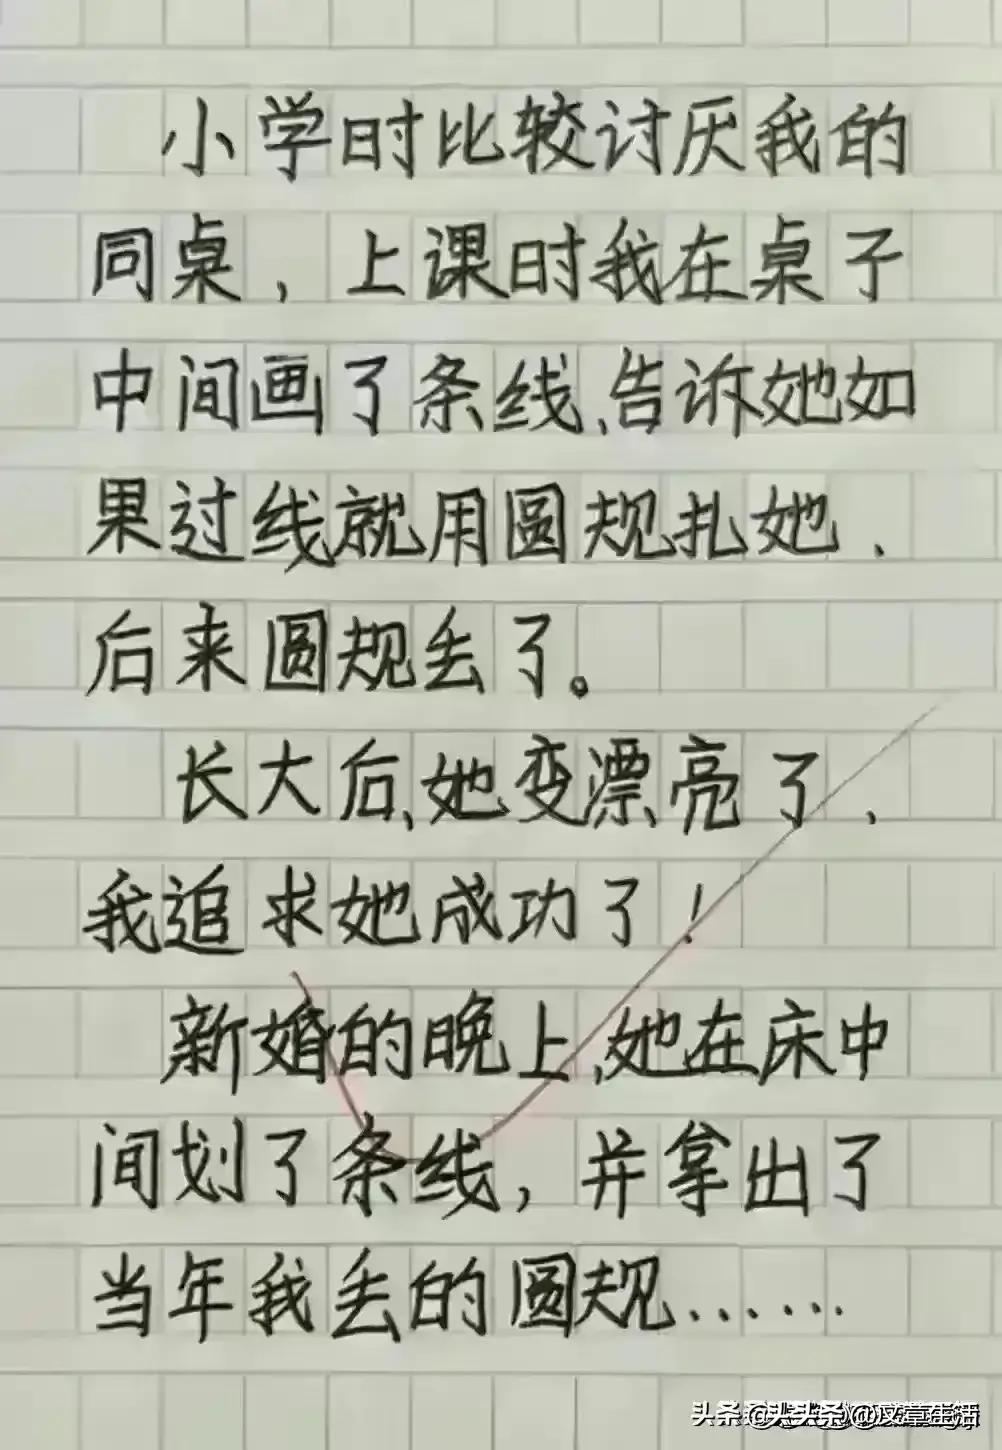 小学时比较讨厌我的
同桌，上课时我在桌子
中间画了条线、告诉她如
果过线就用圆规扎她、
后来圆规丢了。
长大后、她变漂亮了、
我追求她成功了！
新婚的晚上、她在床中
间划了条线，并拿出了
当年我丢的圆规……
头条 @头条 @文章生活